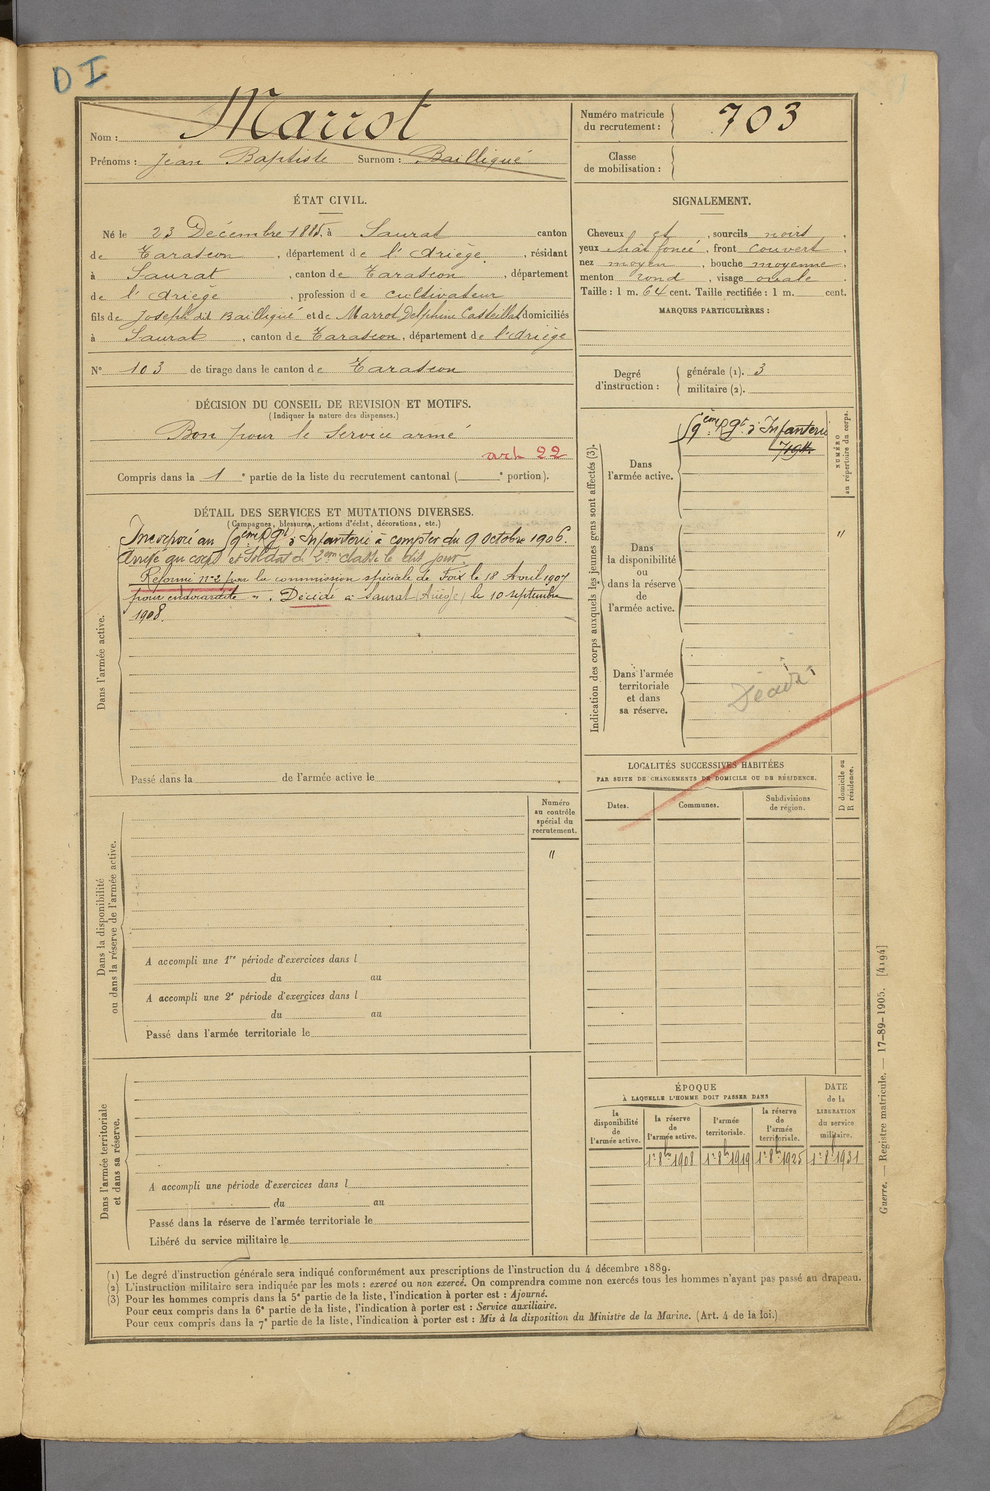 D I
Nom : Marrot
Prénoms : Jean Baptiste Surnom : Bailligué
Numéro matricule du recrutement : 703
Classe de mobilisation :
ÉTAT CIVIL.
Né le 23 Décembre 1885, à Saurat canton
de Tarascon, département de l'Ariège, résidant
à Saurat, canton de Tarascon, département
de l'Ariège, profession de cultivateur
fils de Joseph dit Bailligué et de Marrot Delphine Casteillat domiciliés
à Saurat, canton de Tarascon, département de l'Ariège
N° 103 de tirage dans le canton de Tarascon
SIGNALEMENT.
Cheveux et, sourcils noirs,
yeux chât foncé, front couvert,
nez moyen, bouche moyenne,
menton rond, visage ovale
Taille : 1 m. 64 cent. Taille rectifiée : 1 m. cent.
MARQUES PARTICULIÈRES :
Degré d'instruction : générale (1). 3
militaire (2).
DÉCISION DU CONSEIL DE REVISION ET MOTIFS.
(Indiquer la nature des dispenses.)
Bon pour le Service armé
art 22
Compris dans la 1e partie de la liste du recrutement cantonal ( e portion).
DÉTAIL DES SERVICES ET MUTATIONS DIVERSES.
(Campagnes, blessures, actions d'éclat, décorations, etc.)
Incorporé au 59ème Rgt d'Infanterie à compter du 9 Octobre 1906.
Arrivé au corps et Soldat de 2ème classe le dit jour
Réformé n°2 par la commission spéciale de Foix le 18 Avril 1907
pour endocardite. Décédé à Saurat (Ariège) le 10 septembre
1908.
Dans l'armée active.
Passé dans la de l'armée active le
Indication des corps auxquels les jeunes gens sont affectés (3).
NUMÉRO au répertoire du corps.
Dans l'armée active.
59ème Rgt d'Infanterie
Dans la disponibilité ou dans la réserve de l'armée active.
"
Dans l'armée territoriale et dans sa réserve.
Décédé
LOCALITÉS SUCCESSIVES HABITÉES
PAR SUITE DE CHANGEMENTS DE DOMICILE OU DE RÉSIDENCE.
Dates.
Communes.
Subdivisions de région.
D domicile ou R résidence.
Numéro au contrôle spécial du recrutement.
"
Dans la disponibilité ou dans la réserve de l'armée active.
A accompli une 1re période d'exercices dans l
du au
A accompli une 2e période d'exercices dans l
du au
Passé dans l'armée territoriale le
Dans l'armée territoriale et dans sa réserve.
A accompli une période d'exercices dans l
du au
Passé dans la réserve de l'armée territoriale le
Libéré du service militaire le
ÉPOQUE
À LAQUELLE L'HOMME DOIT PASSER DANS
la disponibilité de l'armée active.
la réserve de l'armée active.
l'armée territoriale.
la réserve de l'armée territoriale.
DATE de la LIBÉRATION du service militaire.
1er 8bre 1908 1er 8bre 1919 1er 8bre 1925 1er 8bre 1931
Guerre. — Registre matricule. — 17-89-1905. [4194]
(1) Le degré d'instruction générale sera indiqué conformément aux prescriptions de l'instruction du 4 décembre 1889.
(2) L'instruction militaire sera indiquée par les mots : exercé ou non exercé. On comprendra comme non exercés tous les hommes n'ayant pas passé au drapeau.
(3) Pour les hommes compris dans la 5e partie de la liste, l'indication à porter est : Ajourné.
Pour ceux compris dans la 6e partie de la liste, l'indication à porter est : Service auxiliaire.
Pour ceux compris dans la 7e partie de la liste, l'indication à porter est : Mis à la disposition du Ministre de la Marine. (Art. 4 de la loi.)